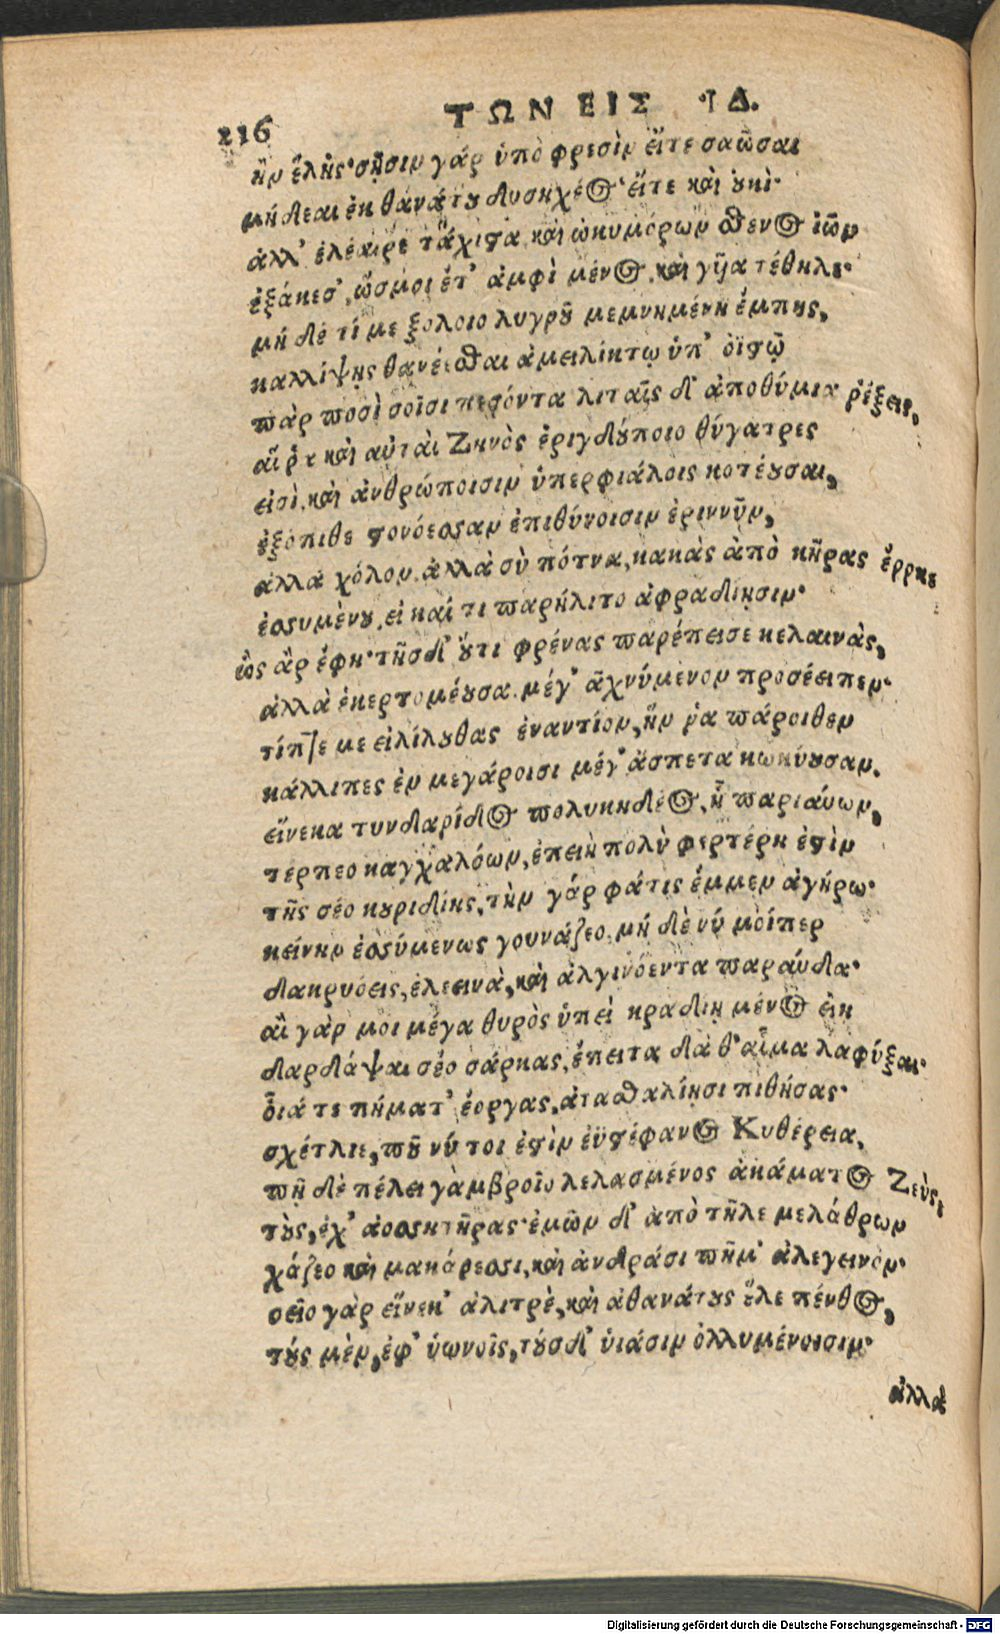 216
ΤΩΝ ΕΙΣ ΙΔ.
ἣν ἕλῃς· σῇσιν γάρ ὑπὸ φρεσὶν εἴτε σαῶσαι
μήδεαι ἐκ θανάτου δυσηχέος· εἴτε καὶ οὐκί·
ἀλλ' ἐλέαιρε τάχιστα, καὶ ὠκυμόρων σθένος ἰῶν
ἐξάκεσ', ὥς μοι ἔτ' ἀμφὶ μένος, καὶ γῦα τέθηλε·
μή δέ τί με ξόλοιο λυγροῦ μεμνημένη ἔμπης,
καλλίψῃς θανέεσθαι ἀμειλίκτῳ ὑπ' ὀϊστῷ
πὰρ ποσὶ σοῖσι πεσόντα λιταῖς δ' ἀποθύμια ῥέξεις,
αἵ ῥα καὶ αὐταὶ Ζηνὸς ἐριγδούποιο θύγατρες
εἰσὶ, καὶ ἀνθρώποισιν ὑπερφιάλοις κοτέουσαι,
ἐξόπιθε στονόεσσαν ἐπιθύνοισιν ἐριννῦν,
ἀλλὰ χόλον. ἀλλὰ σὺ πότνα, κακὰς ἀπὸ κῆρας ἔρρκε
ἐσσυμένου, εἰ καί τι παρήλιτο ἀφραδίῃσιν·
ὣς ἂρ ἔφη· τῆσδ' οὔτι φρένας παρέπεισε κελαινὰς,
ἀλλὰ ἐκερτομέουσα. μέγ' ἀχνύμενον προσέειπεν·
τίπτε με εἰλίλουθας ἐναντίον, ἥν ῥα πάροιθεν
κάλλιπες ἐν μεγάροισι μέγ' ἄσπετα κωκύουσαν.
εἵνεκα τυνδαρίδος πολυκηδέος, ᾗ παριαύων,
τέρπεο καγχαλόων, ἐπειὴ πολὺ φερτέρη ἐστὶν
τῆς σέο κουριδίης, τὴν γάρ φάτις ἔμμεν ἀγήρω·
κείνην ἐσσύμενως γουνάζεο. μή δὲ νύ μοίπερ
δακρυόεις, ἐλεεινὰ, καὶ ἀλγινόεντα παραύδα·
αἲ γὰρ μοι μέγα θυρὸς ὑπεὶ κραδίῃ μένος εἴη
δαρδάψαι σέο σάρκας, ἔπειτα δὰ θ' αἷμα λαφύξαι·
οἷιά τε πήματ' ἔοργας, ἀτασθαλίῃσι πιθήσας·
σχέτλιε, ποῦ νύ τοι ἐστὶν ἐϋστέφανος Κυθέρεια,
πῆ δὲ πέλει γαμβροῖο λελασμένος ἀκάματος Ζεὺς,
τοὺς, ἐχ' ἀοσσητῆρας· ἐμῶν δ' ἀπὸ τῆλε μελάθρων
χάζεο καὶ μακάρεσσι, καὶ ἀνδράσι πῆμ' ἀλεγεινόν·
σεῖο γὰρ εἵνεκ' ἀλιτρὲ, καὶ ἀθανάτους ἕλε πένθος,
τούς μὲν, ἐφ' ὑωνοῖς, τούσδ' ὑιάσιν ὀλλυμένοισιν·
ἀλλὰ
Digitalisierung gefördert durch die Deutsche Forschungsgemeinschaft - DFG